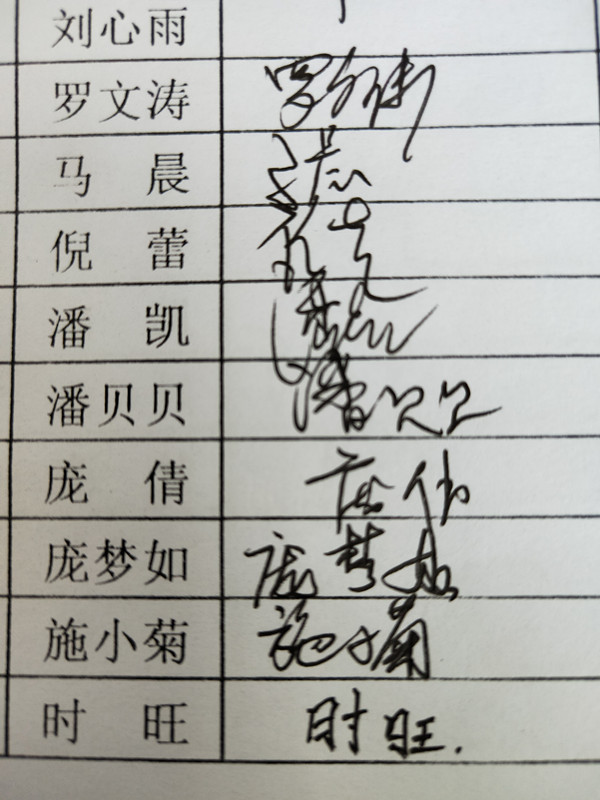 刘心雨
罗文涛 罗文涛
马 晨
倪 蕾
潘 凯 潘凯
潘贝贝 潘贝贝
庞 倩 庞倩
庞梦如 庞梦如
施小菊 施小菊
时 旺 时旺.